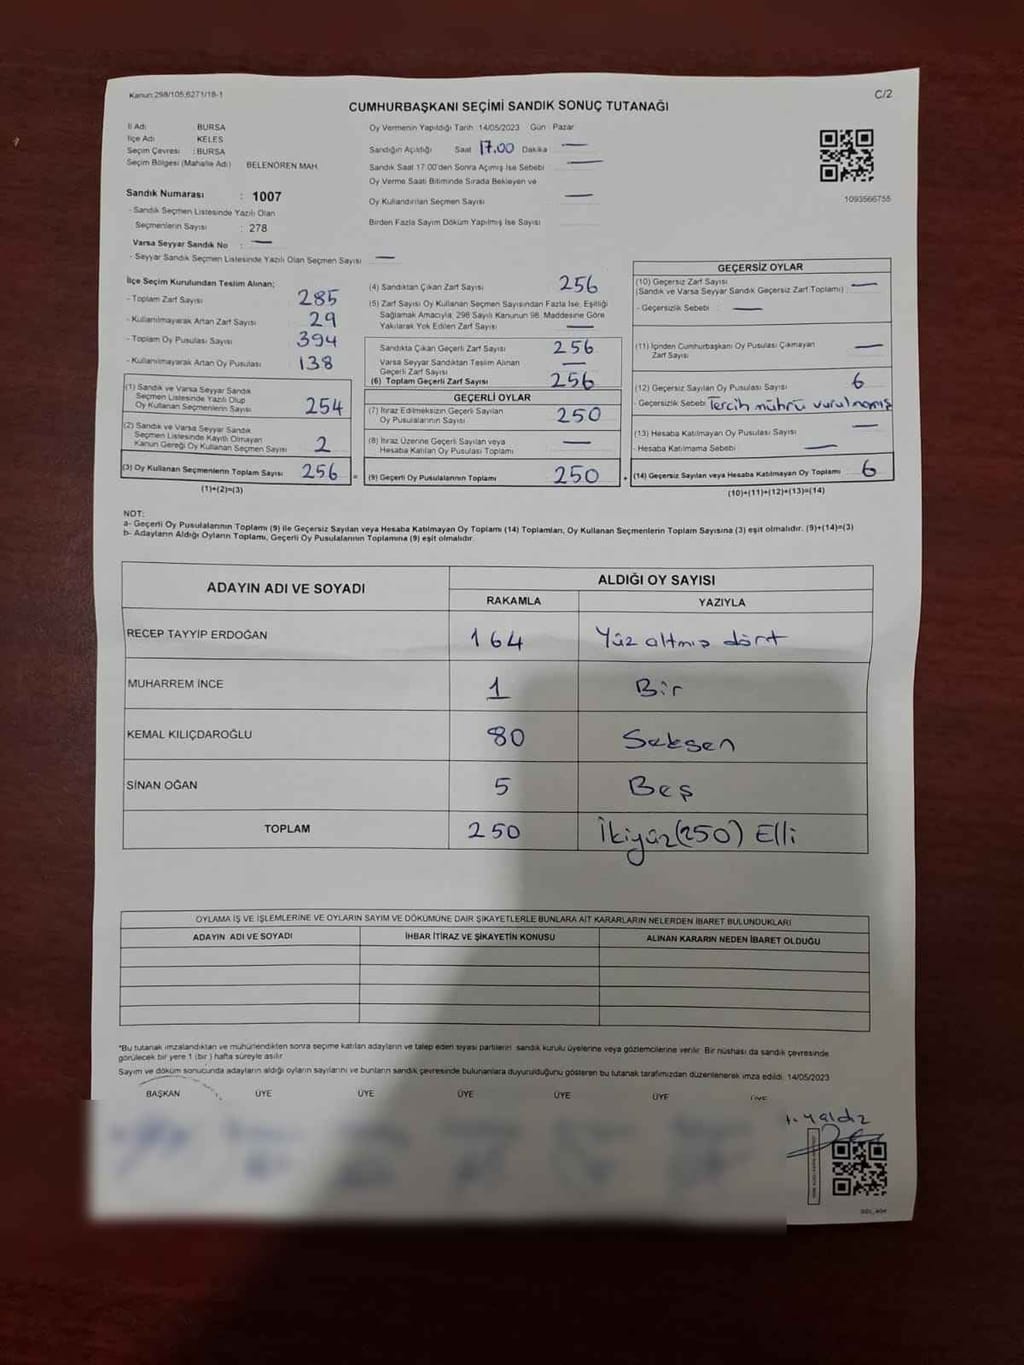 Kanun:298/105,6271/18-1
C/2
CUMHURBAŞKANI SEÇİMİ SANDIK SONUÇ TUTANAĞI
İl Adı BURSA
İlçe Adı KELES
Seçim Çevresi : BURSA
Seçim Bölgesi (Mahalle Adı) BELENÖREN MAH.
Sandık Numarası : 1007
- Sandık Seçmen Listesinde Yazılı Olan
Seçmenlerin Sayısı : 278
Varsa Seyyar Sandık No : —
- Seyyar Sandık Seçmen Listesinde Yazılı Olan Seçmen Sayısı —
Oy Vermenin Yapıldığı Tarih 14/05/2023 Gün Pazar
Sandığın Açıldığı Saat 17.00 Dakika —
Sandık Saat 17:00'den Sonra Açılmış İse Sebebi —
Oy Verme Saati Bitiminde Sırada Bekleyen ve
Oy Kullandırılan Seçmen Sayısı —
Birden Fazla Sayım Döküm Yapılmış İse Sayısı
1093566755
İlçe Seçim Kurulundan Teslim Alınan;
- Toplam Zarf Sayısı 285
- Kullanılmayarak Artan Zarf Sayısı 29
- Toplam Oy Pusulası Sayısı 394
- Kullanılmayarak Artan Oy Pusulası 138
(1) Sandık ve Varsa Seyyar Sandık
Seçmen Listesinde Yazılı Olup
Oy Kullanan Seçmenlerin Sayısı 254
(2) Sandık ve Varsa Seyyar Sandık
Seçmen Listesinde Kayıtlı Olmayan
Kanun Gereği Oy Kullanan Seçmen Sayısı 2
(3) Oy Kullanan Seçmenlerin Toplam Sayısı 256 =
(1)+(2)=(3)
(4) Sandıktan Çıkan Zarf Sayısı 256
(5) Zarf Sayısı Oy Kullanan Seçmen Sayısından Fazla İse, Eşitliği
Sağlamak Amacıyla, 298 Sayılı Kanunun 98. Maddesine Göre
Yakılarak Yok Edilen Zarf Sayısı —
Sandıkta Çıkan Geçerli Zarf Sayısı 256
Varsa Seyyar Sandıktan Teslim Alınan
Geçerli Zarf Sayısı —
(6) Toplam Geçerli Zarf Sayısı 256
GEÇERLİ OYLAR
(7) İtiraz Edilmeksizin Geçerli Sayılan
Oy Pusulalarının Sayısı 250
(8) İtiraz Üzerine Geçerli Sayılan veya
Hesaba Katılan Oy Pusulası Toplamı —
(9) Geçerli Oy Pusulalarının Toplamı 250 +
GEÇERSİZ OYLAR
(10) Geçersiz Zarf Sayısı
(Sandık ve Varsa Seyyar Sandık Geçersiz Zarf Toplamı) —
- Geçersizlik Sebebi : —
(11) İçinden Cumhurbaşkanı Oy Pusulası Çıkmayan
Zarf Sayısı —
(12) Geçersiz Sayılan Oy Pusulası Sayısı 6
- Geçersizlik Sebebi Tercih mührü vurulmamış
(13) Hesaba Katılmayan Oy Pusulası Sayısı —
- Hesaba Katılmama Sebebi —
(14) Geçersiz Sayılan veya Hesaba Katılmayan Oy Toplamı 6
(10)+(11)+(12)+(13)=(14)
NOT:
a- Geçerli Oy Pusulalarının Toplamı (9) ile Geçersiz Sayılan veya Hesaba Katılmayan Oy Toplamı (14) Toplamları, Oy Kullanan Seçmenlerin Toplam Sayısına (3) eşit olmalıdır. (9)+(14)=(3)
b- Adayların Aldığı Oyların Toplamı, Geçerli Oy Pusulalarının Toplamına (9) eşit olmalıdır.
ADAYIN ADI VE SOYADI
ALDIĞI OY SAYISI
RAKAMLA YAZIYLA
RECEP TAYYİP ERDOĞAN 164 Yüz altmış dört
MUHARREM İNCE 1 Bir
KEMAL KILIÇDAROĞLU 80 Seksen
SİNAN OĞAN 5 Beş
TOPLAM 250 İkiyüz(250) Elli
OYLAMA İŞ VE İŞLEMLERİNE VE OYLARIN SAYIM VE DÖKÜMÜNE DAİR ŞİKAYETLERLE BUNLARA AİT KARARLARIN NELERDEN İBARET BULUNDUKLARI
ADAYIN ADI VE SOYADI İHBAR İTİRAZ VE ŞİKAYETİN KONUSU ALINAN KARARIN NEDEN İBARET OLDUĞU
*Bu tutanak imzalandıktan ve mühürlendikten sonra seçime katılan adayların ve talep eden siyasi partilerin sandık kurulu üyelerine veya gözlemcilerine verilir. Bir nüshası da sandık çevresinde
görülecek bir yere 1 (bir) hafta süreyle asılır
Sayım ve döküm sonucunda adayların aldığı oyların sayılarını ve bunların sandık çevresinde bulunanlara duyurulduğunu gösteren bu tutanak tarafımızdan düzenlenerek imza edildi. 14/05/2023
BAŞKAN ÜYE ÜYE ÜYE ÜYE ÜYE ÜYE
Yaldız